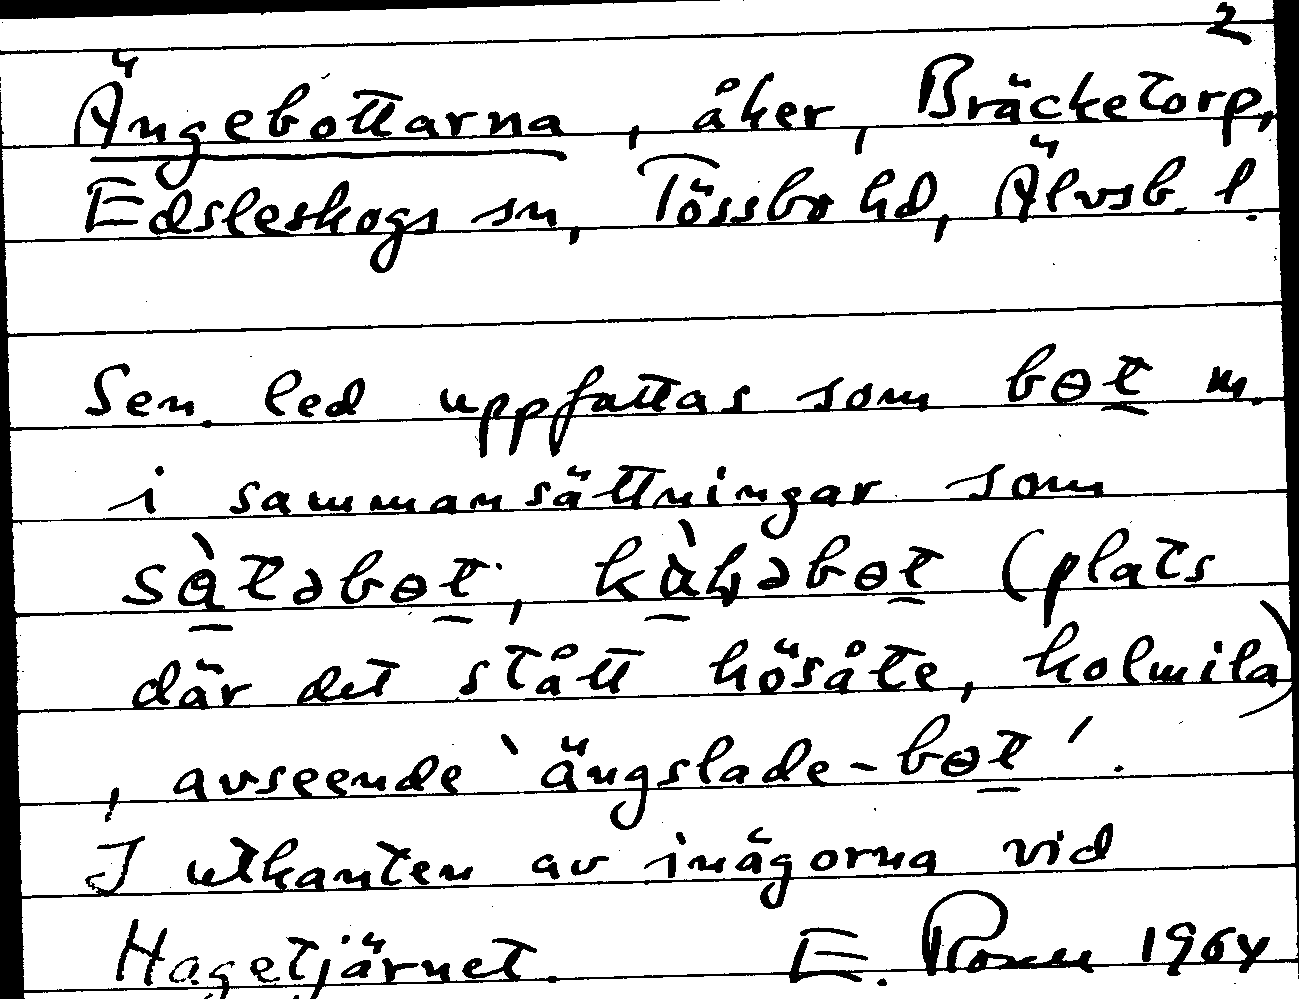 2
Ängebottarna, åker, Bräcketorp,
Edsleskogs sn, Tössbo hd, Älvsb. l.
Sen. led uppfattas som bɵt m.
i sammansättningar som
sàtəbɵt,
(plats
där det stått hösåte, kolmila)
, avseende `ängslade-bɵt´.
I utkanten av inägorna vid
Hagetjärnet. E. Rosell 1964